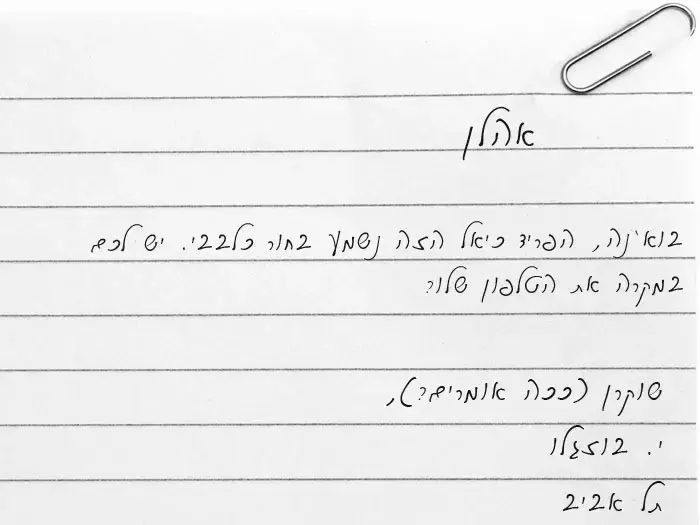 אהלן
בוא'נה, הפריד כיאל הזה נשמע בחור כלבבי. יש לכם
במקרה את הטלפון שלו?
שוקרן (ככה אומרים?),
י. בוזגלו
תל אביב